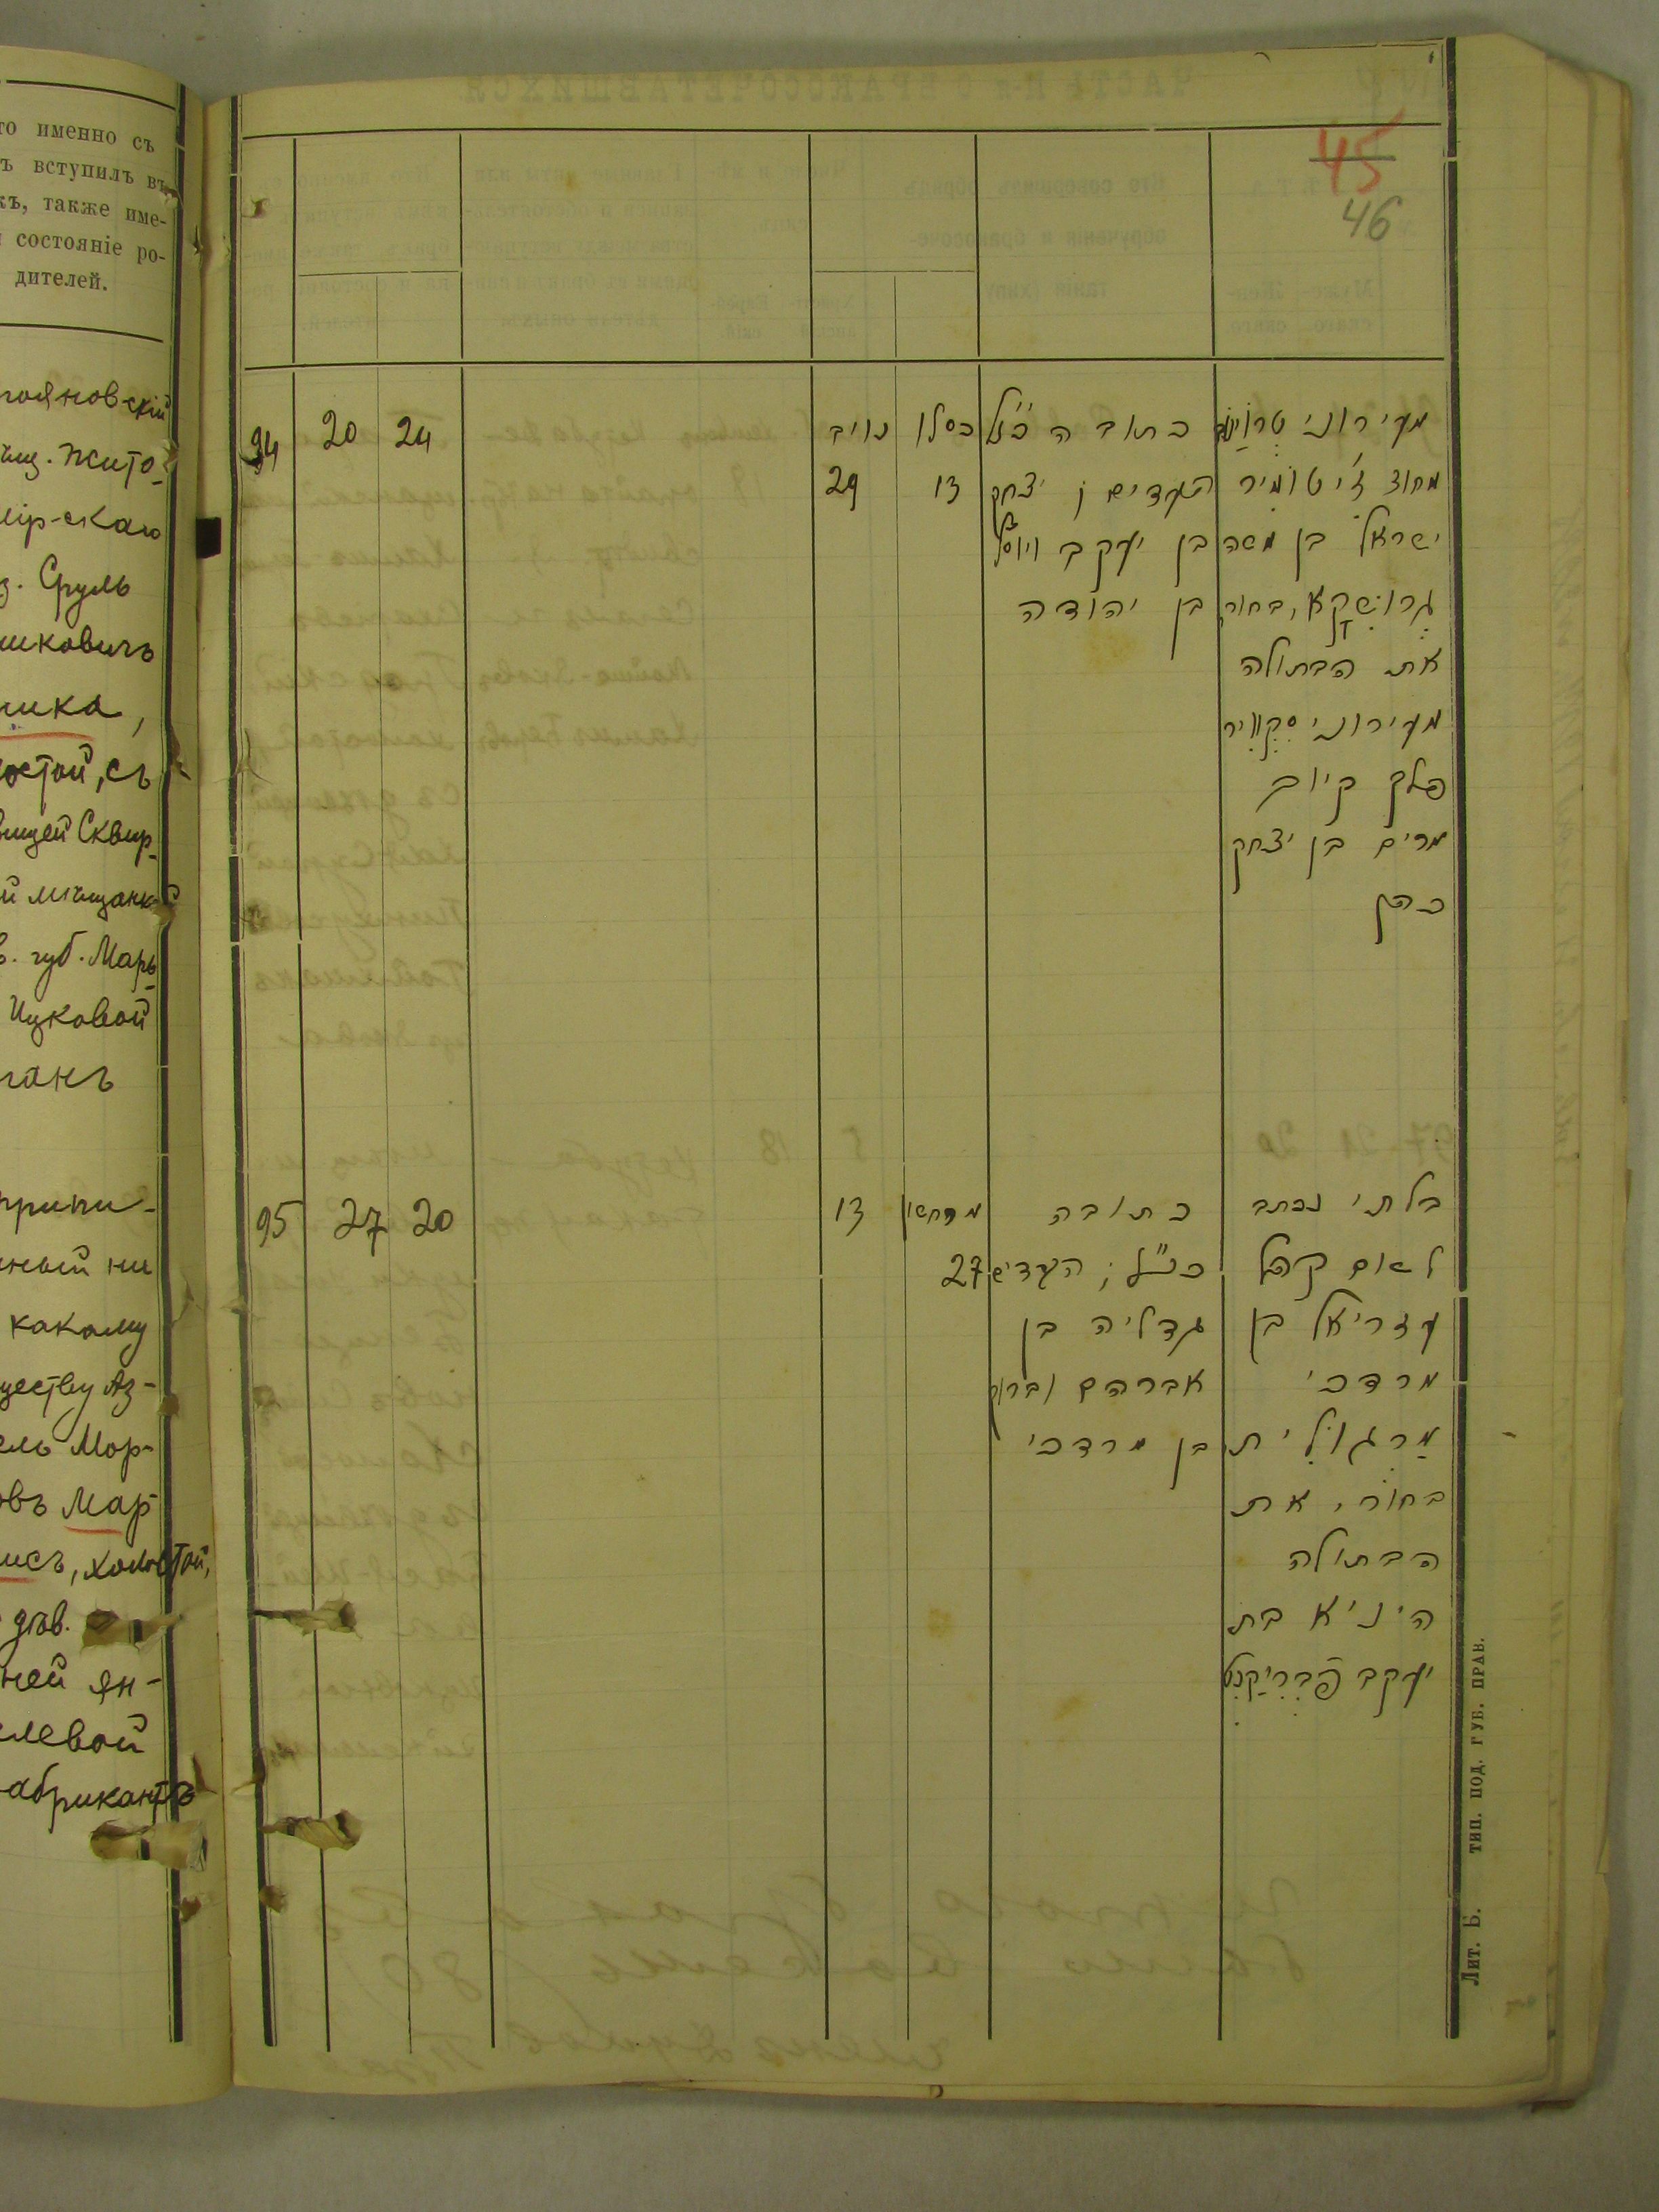 то именно съ
ъ вступилъ въ
къ, также име-
состояніе ро-
дителей.
гояновскій
щ. Жито-
мір-скаго
з. Сруль
шковичъ
шка,
остой, съ
вицей Сквир-
й мѣщанк
в. губ. Марь
Ицковой
ганъ
припи-
ный ни
какому
ществу Аз-
ель Мор-
овъ Мар-
исъ, холостой,
дѣв.
ней Ян-
елевой
абрикантъ
45
46
94 20 24
נויב כסלו
29 13
כתובה כנ״ל
העדים יצחק
בן יעקב
בן יהודה
מעירוני
מחוז זיטומיר
ישראל בן משה
גרושקא, בחור
את הבתולה
מעירוני סקוויר
פלך קיוב
מרים בן יצחק
כהן
95 27 20
13 מרחשון
27
כתובה
כנ״ל; העדים
גדליה בן
אברהם וברוך
בן מרדכי
בלתי נכתב
לשום קהל
עזריאל בן
מרדכי
מרגולית
בחור, את
הבתולה
היניא בת
יעקב פבריקנט
Лит. Б. тип. под. губ. прав.